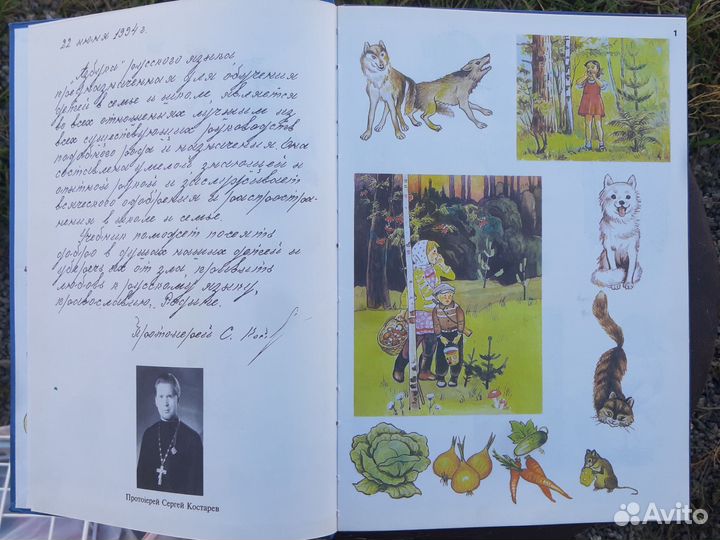 22 июня 1994 г.
"Азбука" русского языка,
предназначенная для обучения
детей в семье и школе является
во всех отношениях лучшим из
всех существующих руководств
подобного рода и назначения. Она
составлена умелой, знающей и
опытной рукой и заслуживает
всяческого одобрения и распростра-
нения в школе и семье.
Учебник поможет посеять
добро в душах наших детей и
уберечь их от зла, привить
любовь к русскому языку,
православию, Родине.
Протоиерей С.
Протоіерей Сергей Костарев
1
Avito